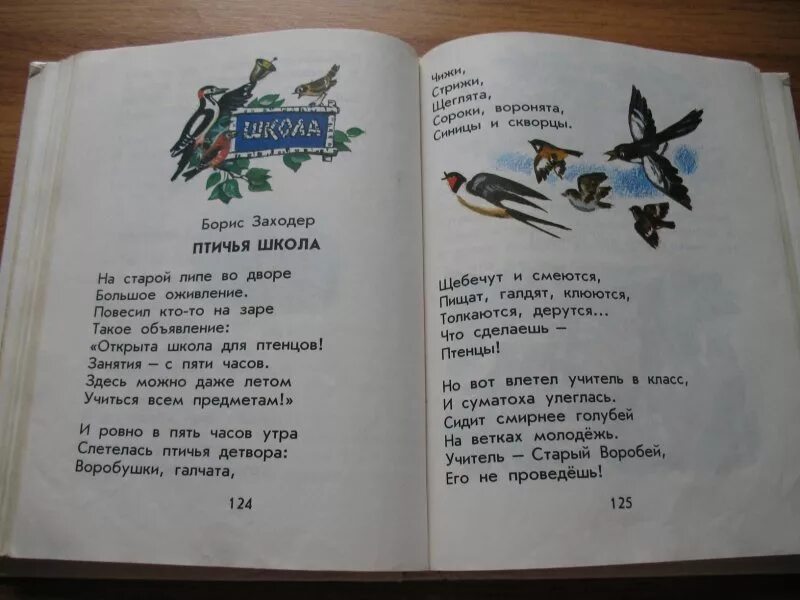 ШКОЛА
Борис Заходер
ПТИЧЬЯ ШКОЛА
На старой липе во дворе
Большое оживление.
Повесил кто-то на заре
Такое объявление:
«Открыта школа для птенцов!
Занятия – с пяти часов.
Здесь можно даже летом
Учиться всем предметам!»
И ровно в пять часов утра
Слетелась птичья детвора:
Воробушки, галчата,
124
Чижи,
Стрижи,
Щеглята,
Сороки, воронята,
Синицы и скворцы.
Щебечут и смеются,
Пищат, галдят, клюются,
Толкаются, дерутся...
Что сделаешь –
Птенцы!
Но вот влетел учитель в класс,
И суматоха улеглась.
Сидит смирнее голубей
На ветках молодёжь.
Учитель – Старый Воробей,
Его не проведёшь!
125